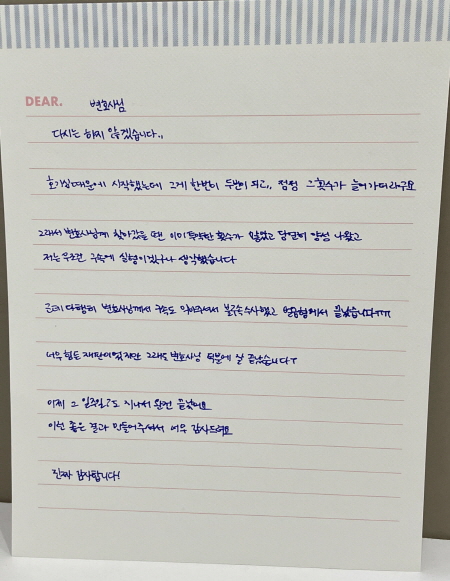 DEAR. 변호사님
다시는 하지 않겠습니다..
호기심때문에 시작했는데 그게 한번이 두번이 되고.. 점점 그 횟수가 늘어가더라구요
그래서 변호사님께 찾아갔을 땐 이미 투약한 횟수가 많았고 당연히 양성 나왔고
저는 무조건 구속에 실형이겠구나 생각했습니다
근데 다행히 변호사님께서 구속도 막아주셔서 불구속수사했고 벌금형에서 끝났습니다ㅠㅠ
너무 힘든 재판이었지만 그래도 변호사님 덕분에 잘 끝났습니다ㅜ
이제 그 일주일도 지나서 완전 끝났어요
이런 좋은 결과 만들어주셔서 너무 감사드려요
진짜 감사합니다!